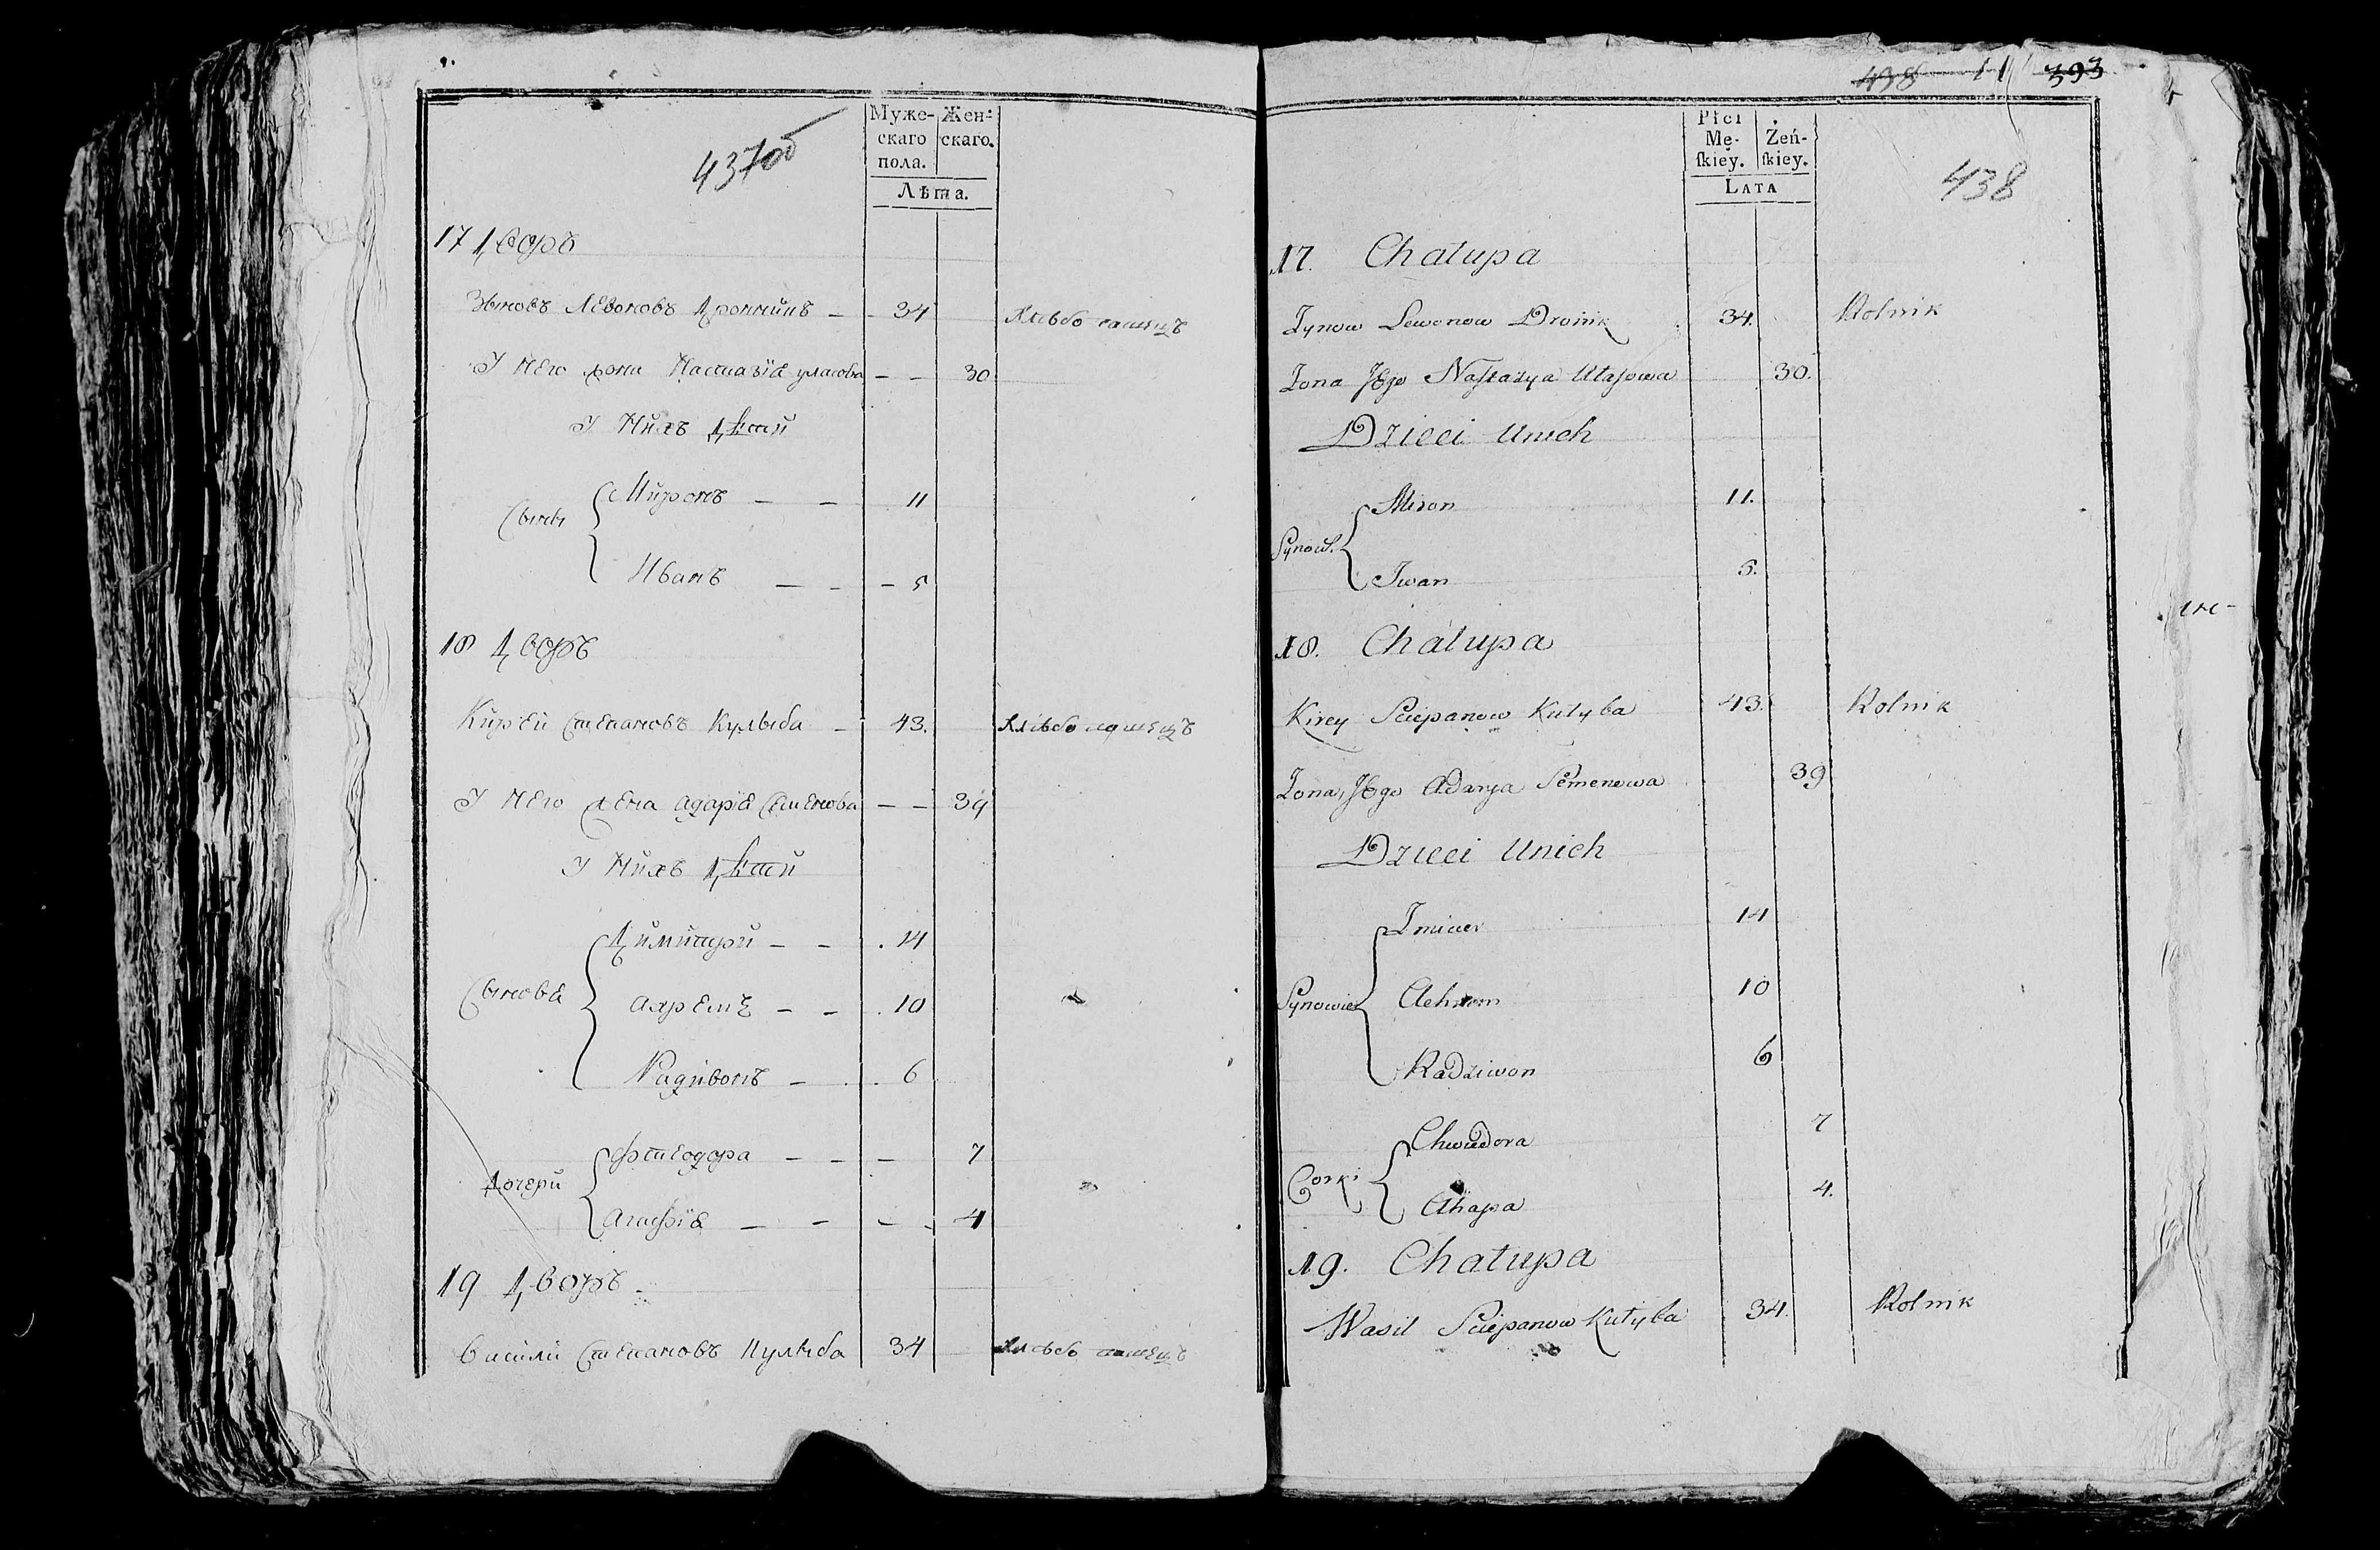 437об
Муже-
скаго
пола.
Жен-
скаго.
Лѣта.
17 Дворъ
Зыновъ Левоновъ Дроникъ — 34 Хлѣбопашецъ
У него жона Настазія Уласова — — 30
У нихъ дѣтй
Сыны
Миронъ — — 11
Иванъ — - - 5
18 Дворъ
Кирей Степановъ Кулыба — 43. Хлѣбопашецъ
У него жена Адарія Семенова — — 39
У нихъ дѣтй
Сыновя
Димитрй — — . 14
Ахремъ — — . 10
Радивонъ — . . 6
Дочери
Фтеодора — — — 7
Агафія — — — - 4
19 Дворъ
Василй Степановъ Кулыба 34 Хлѣбопашецъ
498 11 393
438
Płci
Mę-
ſkiey.
Żeń-
ſkiey.
LATA
17. Chałupa
Zynow Lewonow Dronik 34. Rolnik
Żona Jego Nastazya Ułasowa 30.
Dzieci Unich
Synow.
Miron 11.
Iwan 5.
18. Chałupa
Kirey Sciepanow Kułyba 43. Rolnik
Żona Jego Adarya Semenowa 39
Dzieci Unich
Synowie
Zmicier 14
Achrem 10
Radziwon 6
Corki
Chwiedora 7
Ahapa 4.
19. Chałupa
Wasil Sciepanow Kułyba 34. Rolnik